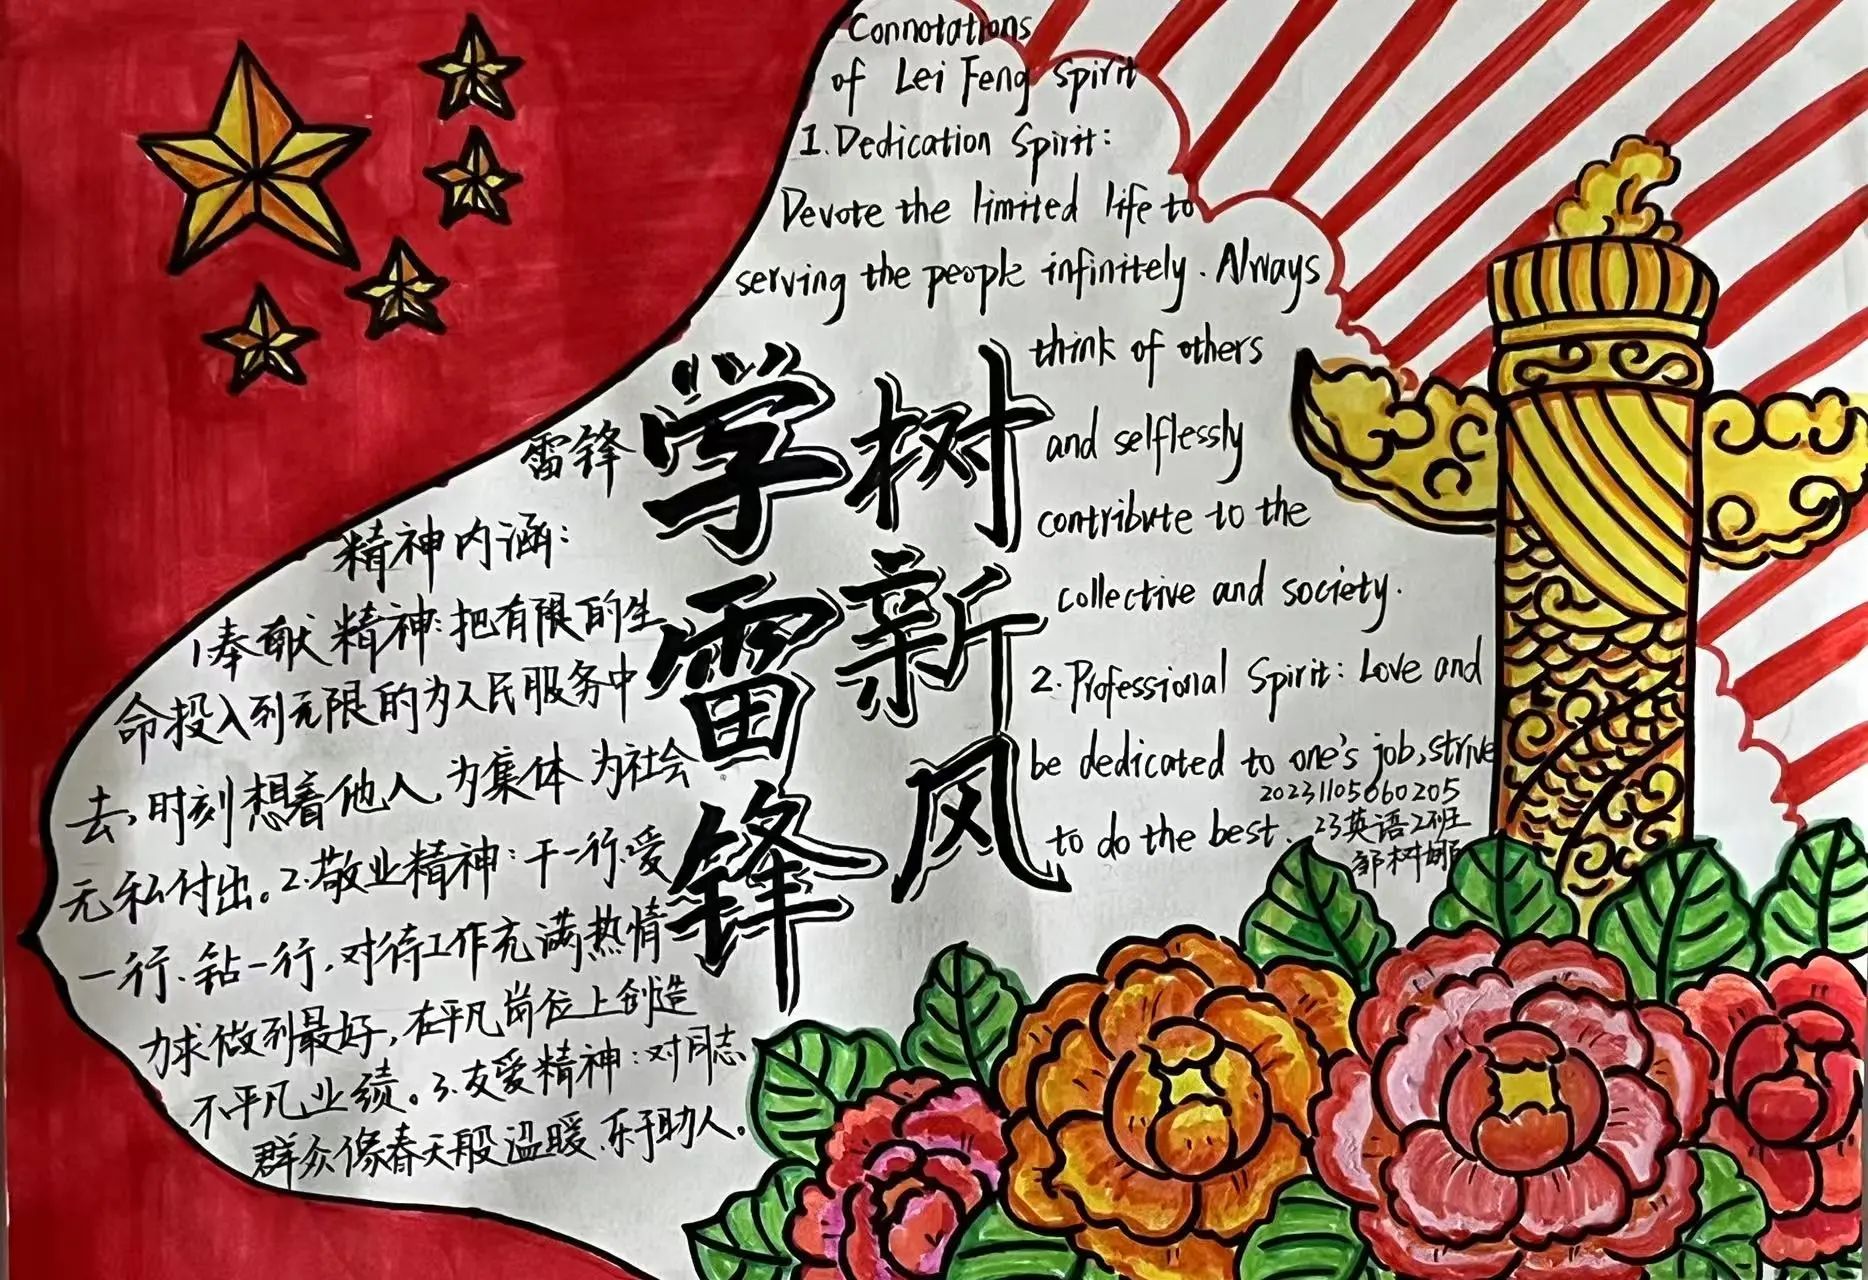 Connotations
of Lei Feng Spirit
1. Dedication Spirit:
Devote the limited life to
serving the people infinitely. Always
think of others
and selflessly
contribute to the
collective and society.
2. Professional Spirit: Love and
be dedicated to one's job, strive
to do the best.
20231105060205
23英语2班
邹树娜
学雷锋
树新风
雷锋
精神内涵:
1.奉献精神:把有限的生
命投入到无限的为人民服务中
去,时刻想着他人,为集体为社会
无私付出。2.敬业精神:干一行爱
一行、钻一行,对待工作充满热情
力求做到最好,在平凡岗位上创造
不平凡业绩。3.友爱精神:对同志
群众像春天般温暖.乐于助人。